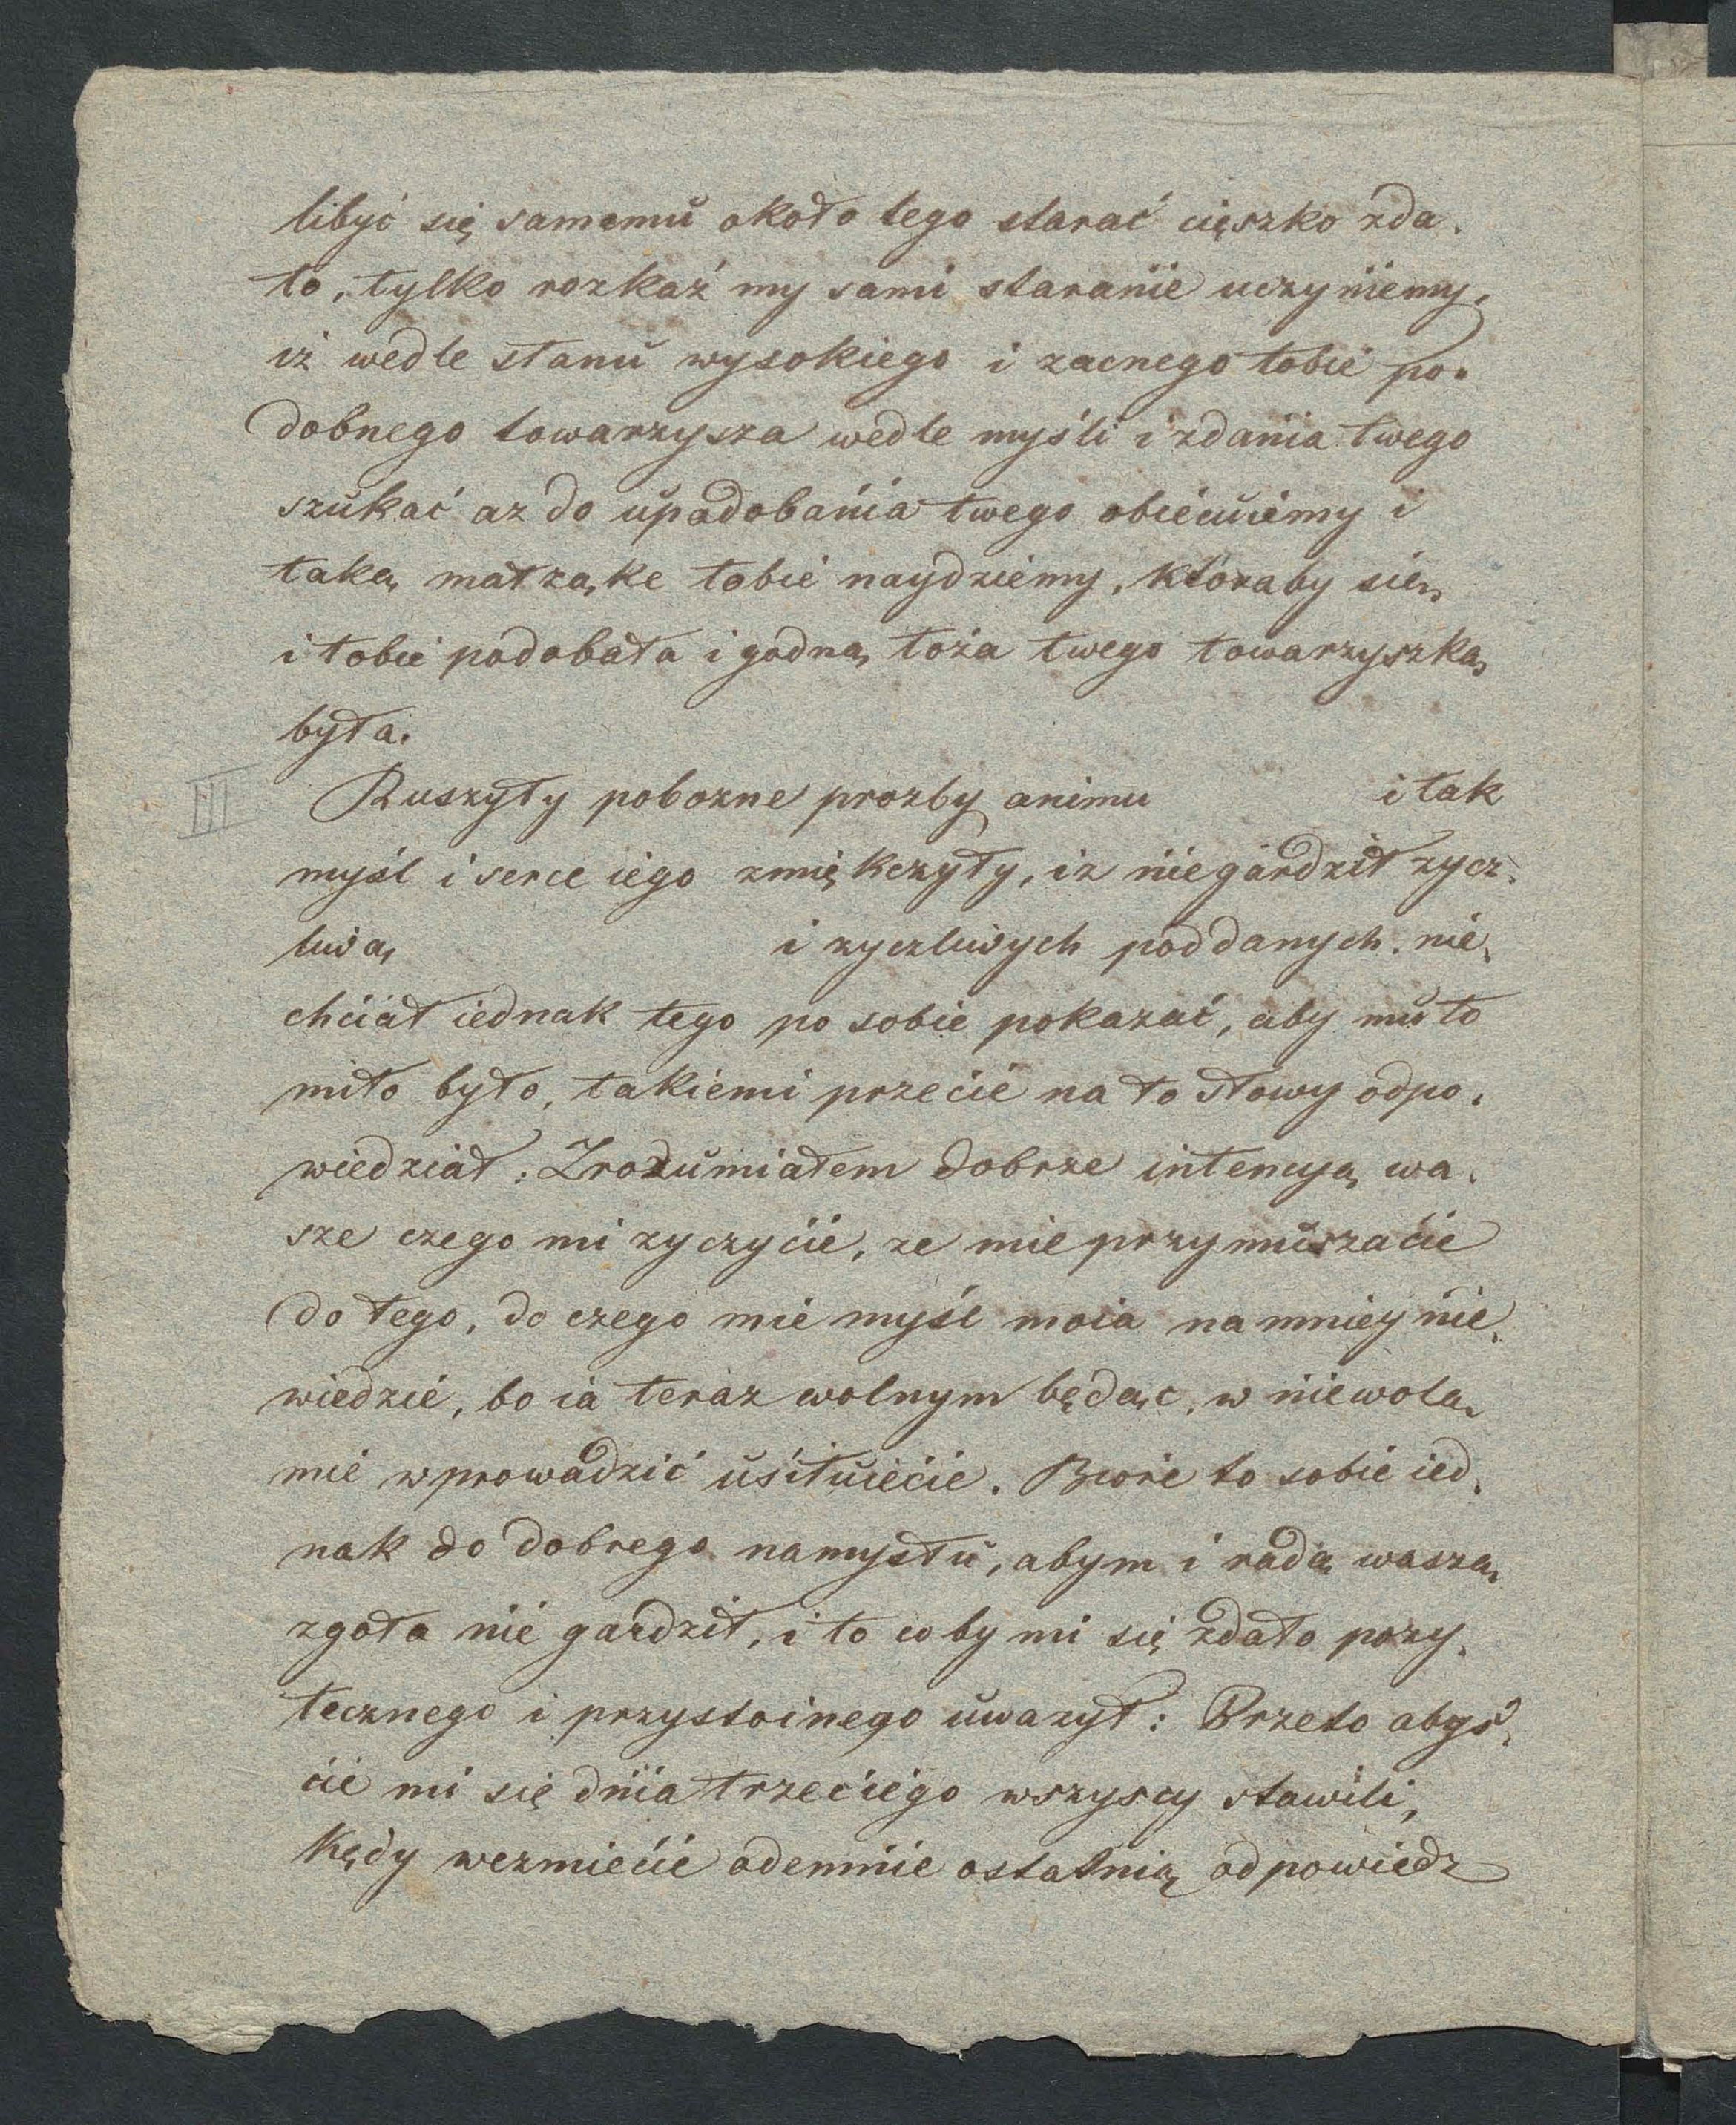 libyć się samemu około tego starać cięszko zda.
ło, tylko rozkaż my sami staranie uczyniemy,
iż wedle stanu wysokiego i zacnego tobie po.
dobnego towarzysza wedle myśli i zdania twego
szukać az do upadobania twego obiecuiemy i
taką małżąke tobie naydziemy, któraby się
i tobie podobała i godną łoża twego towarzyszką
była.
III Ruszyły pobozne prozby animu i tak
myśl i serce iego zmiękczyły, iz niegardził zycz.
liwą i zyczliwych poddanych. nie.
chciał iednak tego po sobie pokazać, aby mu to
miło było, takiemi przecie na to słowy odpo.
wiedział: Zrozumiałem dobrze intencyą wa.
sze czego mi zyczycie, ze mie przymuszacie
do tego, do czego mie myśl moia namniey nie.
wiedzie, bo ia teraz wolnym będąc, w niewolą
mie wprowadzić usiłuiecie. Biorę to sobie ied.
nak do dobrego namysłu, abym i radą waszą
zgoła nie gardził, i to coby mi się zdało pozy.
tecznego i przystoinego uwazył: Przeto abyś.
cie mi się dnia trzeciego wszyscy stawili,
kędy wezmiecie odemnie ostatnią odpowiedz